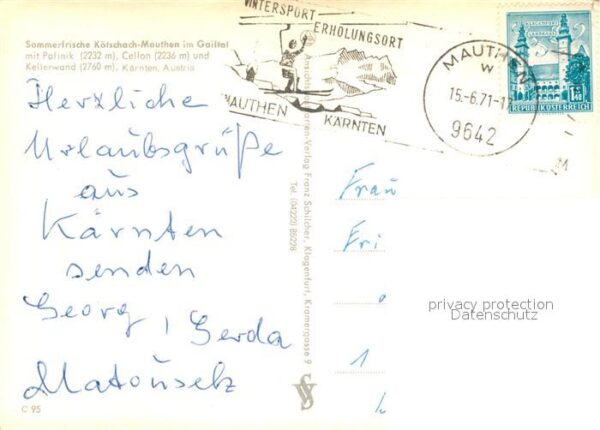 Sommerfrische Kötschach-Mauthen im Gailtal
mit Polinik (2232 m), Cellon (2236 m) und
Kellerwand (2760 m), Kärnten, Austria
Herzliche
Urlaubsgrüße
aus
Kärnten
senden
Georg, Gerda
Matoušek
C 95
WINTERSPORT
ERHOLUNGSORT
MAUTHEN
KÄRNTEN
MAUTHEN
W
15.-6.71-1
9642
KLAGENFURT
REPUBLIK ÖSTERREICH
Karten-Verlag Franz Schilcher, Klagenfurt, Kramergasse 9
Tel. (04222) 85228
Frau
Fri
privacy protection
Datenschutz